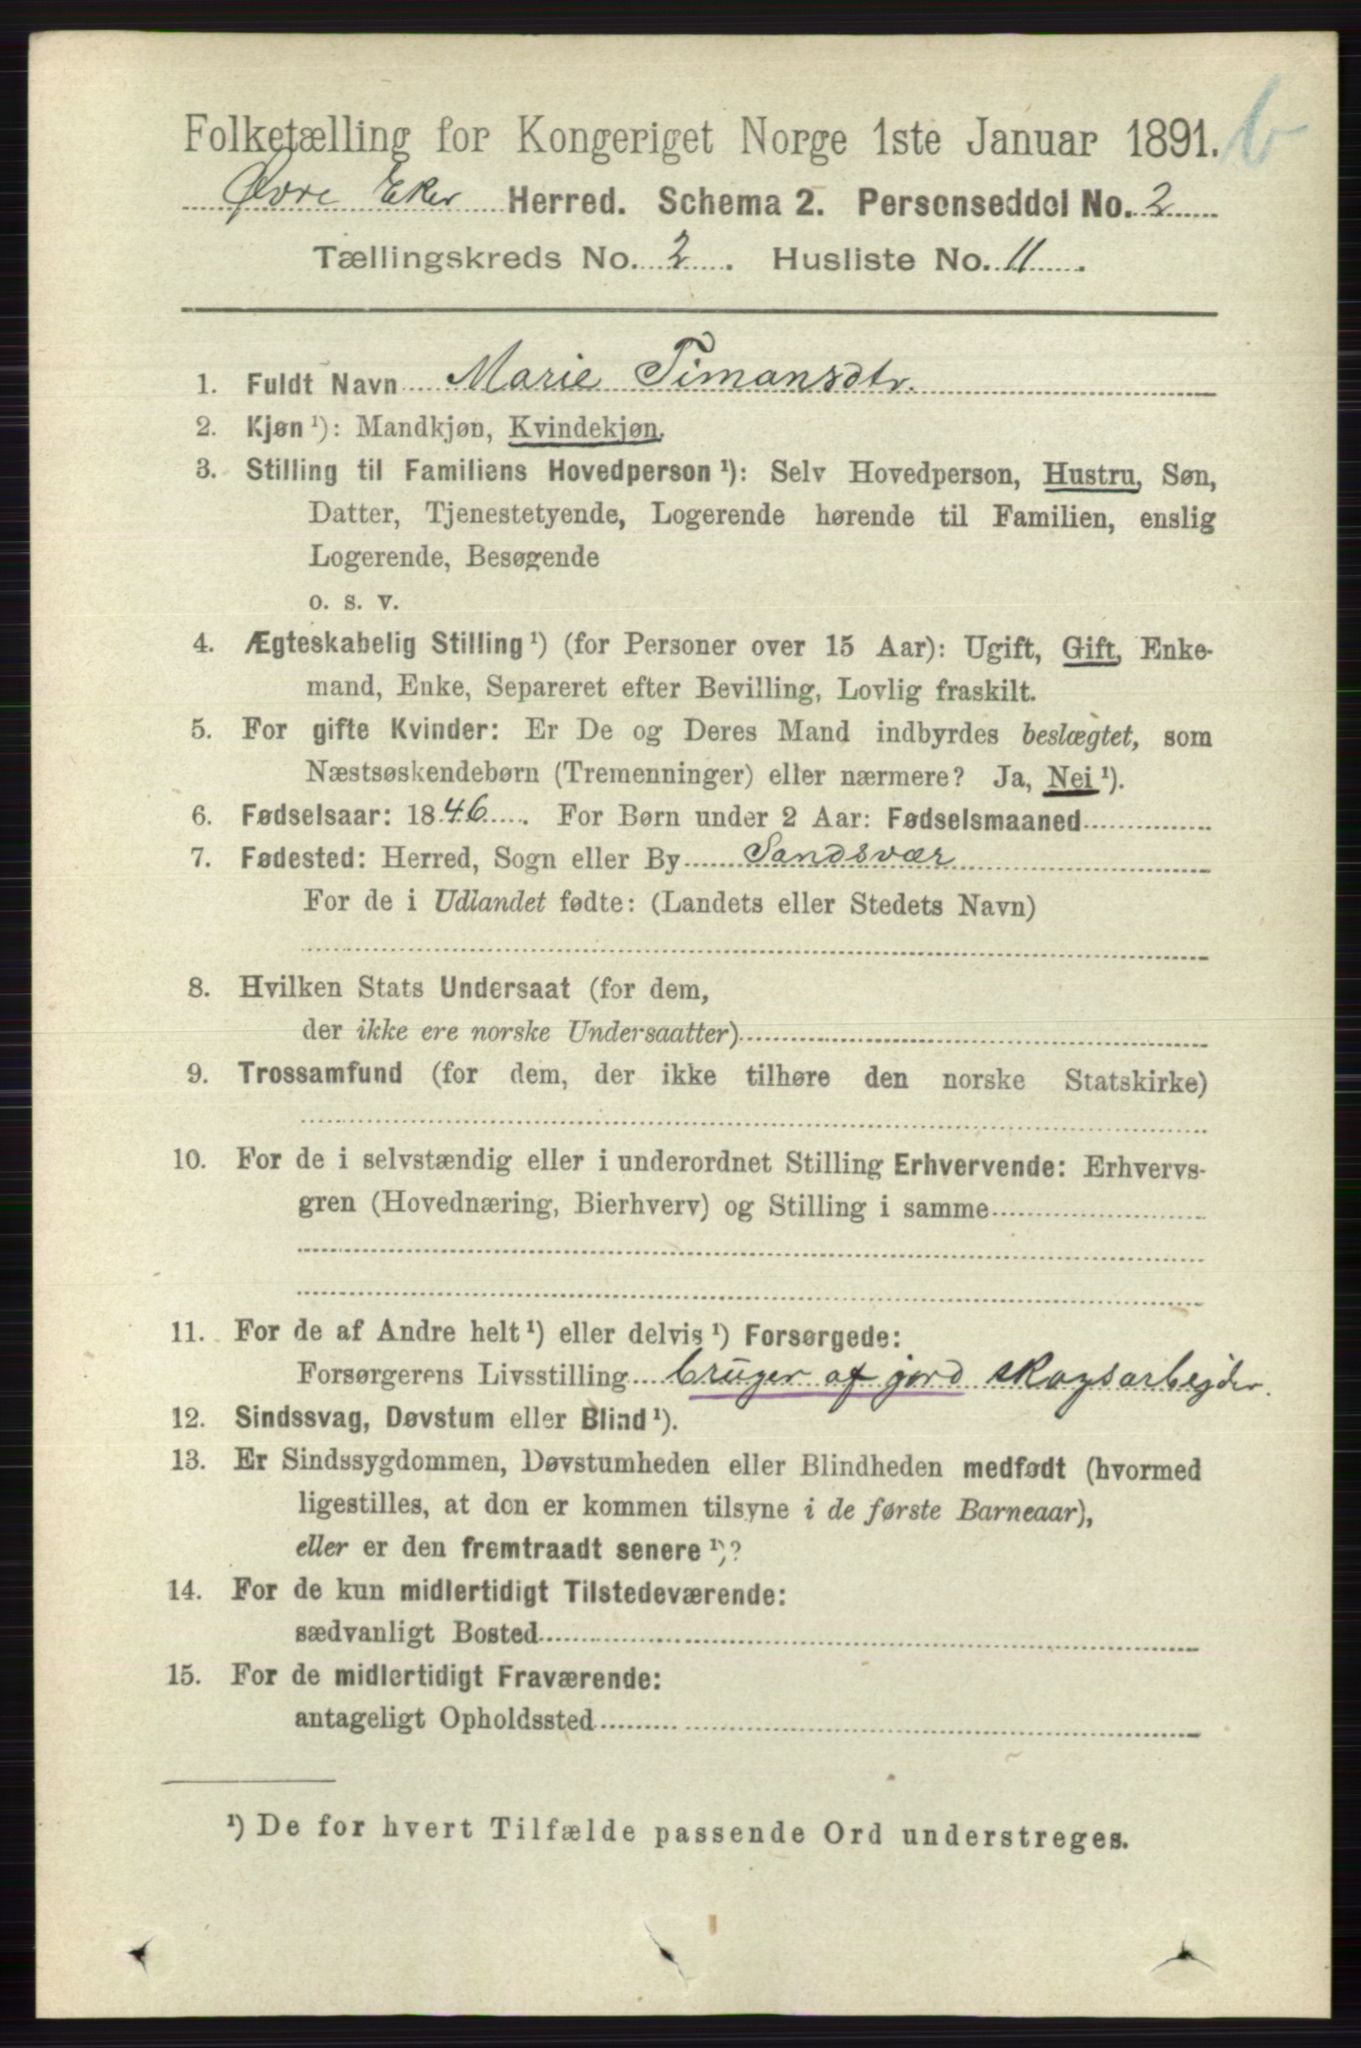 Folketælling for Kongeriget Norge 1ste Januar 1891. b
Øvre Eker Herred. Schema 2. Personseddel No. 2
Tællingskreds No. 2. Husliste No. 11.
1. Fuldt Navn Marie Timansdtr.
2. Kjøn ¹): Mandkjøn, Kvindekjøn.
3. Stilling til Familiens Hovedperson ¹): Selv Hovedperson, Hustru, Søn,
Datter, Tjenestetyende, Logerende hørende til Familien, enslig
Logerende, Besøgende
o. s. v.
4. Ægteskabelig Stilling ¹) (for Personer over 15 Aar): Ugift, Gift, Enke-
mand, Enke, Separeret efter Bevilling, Lovlig fraskilt.
5. For gifte Kvinder: Er De og Deres Mand indbyrdes beslægtet, som
Næstsøskendebørn (Tremenninger) eller nærmere? Ja, Nei ¹).
6. Fødselsaar: 1846. For Børn under 2 Aar: Fødselsmaaned
7. Fødested: Herred, Sogn eller By Sandsvær
For de i Udlandet fødte: (Landets eller Stedets Navn)
8. Hvilken Stats Undersaat (for dem,
der ikke ere norske Undersaatter)
9. Trossamfund (for dem, der ikke tilhøre den norske Statskirke)
10. For de i selvstændig eller i underordnet Stilling Erhvervende: Erhvervs-
gren (Hovednæring, Bierhverv) og Stilling i samme
11. For de af Andre helt ¹) eller delvis ¹) Forsørgede:
Forsørgerens Livsstilling bruger af jord skogsarbejder.
12. Sindssvag, Døvstum eller Blind ¹).
13. Er Sindssygdommen, Døvstumheden eller Blindheden medfødt (hvormed
ligestilles, at den er kommen tilsyne i de første Barneaar),
eller er den fremtraadt senere ¹)?
14. For de kun midlertidigt Tilstedeværende:
sædvanligt Bosted
15. For de midlertidigt Fraværende:
antageligt Opholdssted
¹) De for hvert Tilfælde passende Ord understreges.